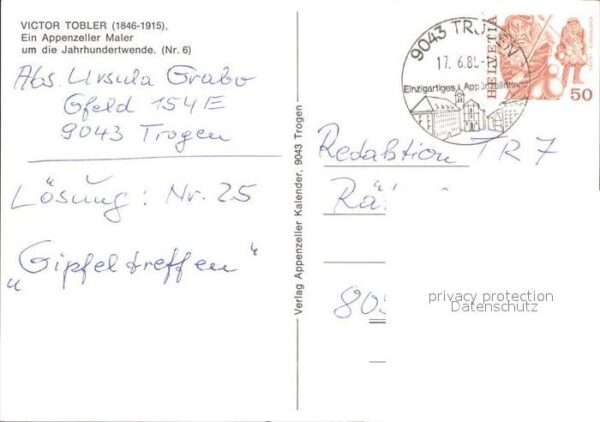 VICTOR TOBLER (1846-1915),
Ein Appenzeller Maler
um die Jahrhundertwende. (Nr. 6)
Abs. Ursula Grabo
Gfeld 154E
9043 Trogen
Lösung: Nr. 25
„Gipfeltreffen"
Verlag Appenzeller Kalender, 9043 Trogen
9043 TROGEN
17. 6. 8
Einzigartiges
HELVETIA
50
Redaktion TR 7
Rä
80
privacy protection
Datenschutz